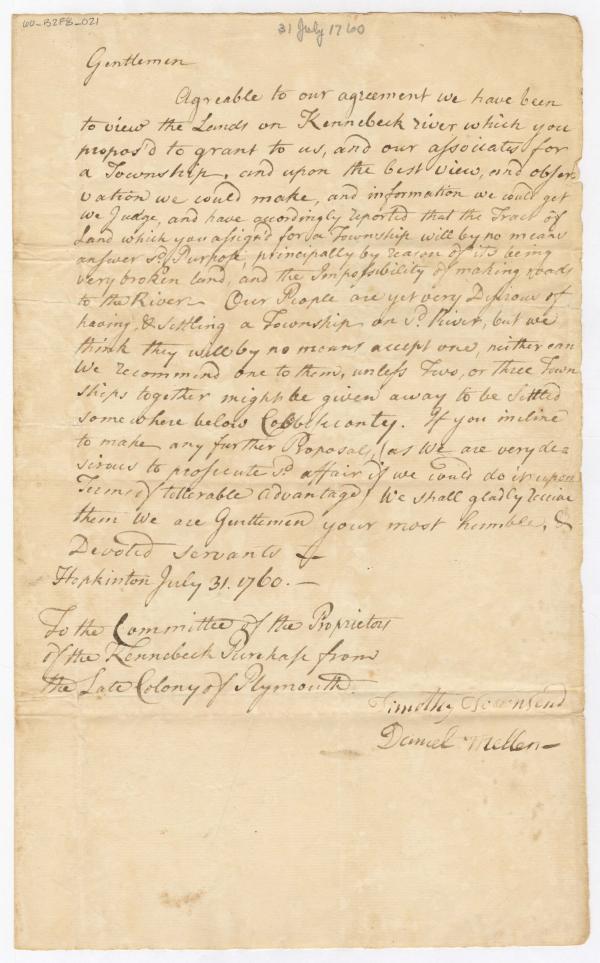 60-B2F8-021
31 July 1760
Gentlemen
Agreable to our agreement we have been
to view the Lands on Kennebeck river which you
propos'd to grant to us, and our assoicates for
a Township, and upon the best view, and obser-
vation we could make, and information we could get
we Judge, and have accordingly reported that the Tract of
Land which you assign'd for a Township will by no means
answer sd. Purpose, principally by reason of its being
very broken land, and the Impossibility of making roads
to the River. Our People are yet very Desirous of
having, & settling a Township on sd. River, but we
think they will by no means accept one, neither can
We recommend one to them, unless Two, or three Town
ships together might be given away to be settled
somewhere below Cobbiseconty. If you incline
to make any further Proposals, (as We are very de=
sirous to prosecute sd. affair if we could do it upon
Terms of tollerable advantage) We shall gladly receive
them We are Gentlemen your most humble, &
Devoted servants
Hopkinton July 31. 1760.—
To the Committee of the Proprietors
of the Kennebeck Purchase from
the Late Colony of Plymouth.
Timothy Townsend
Daniel Mellen